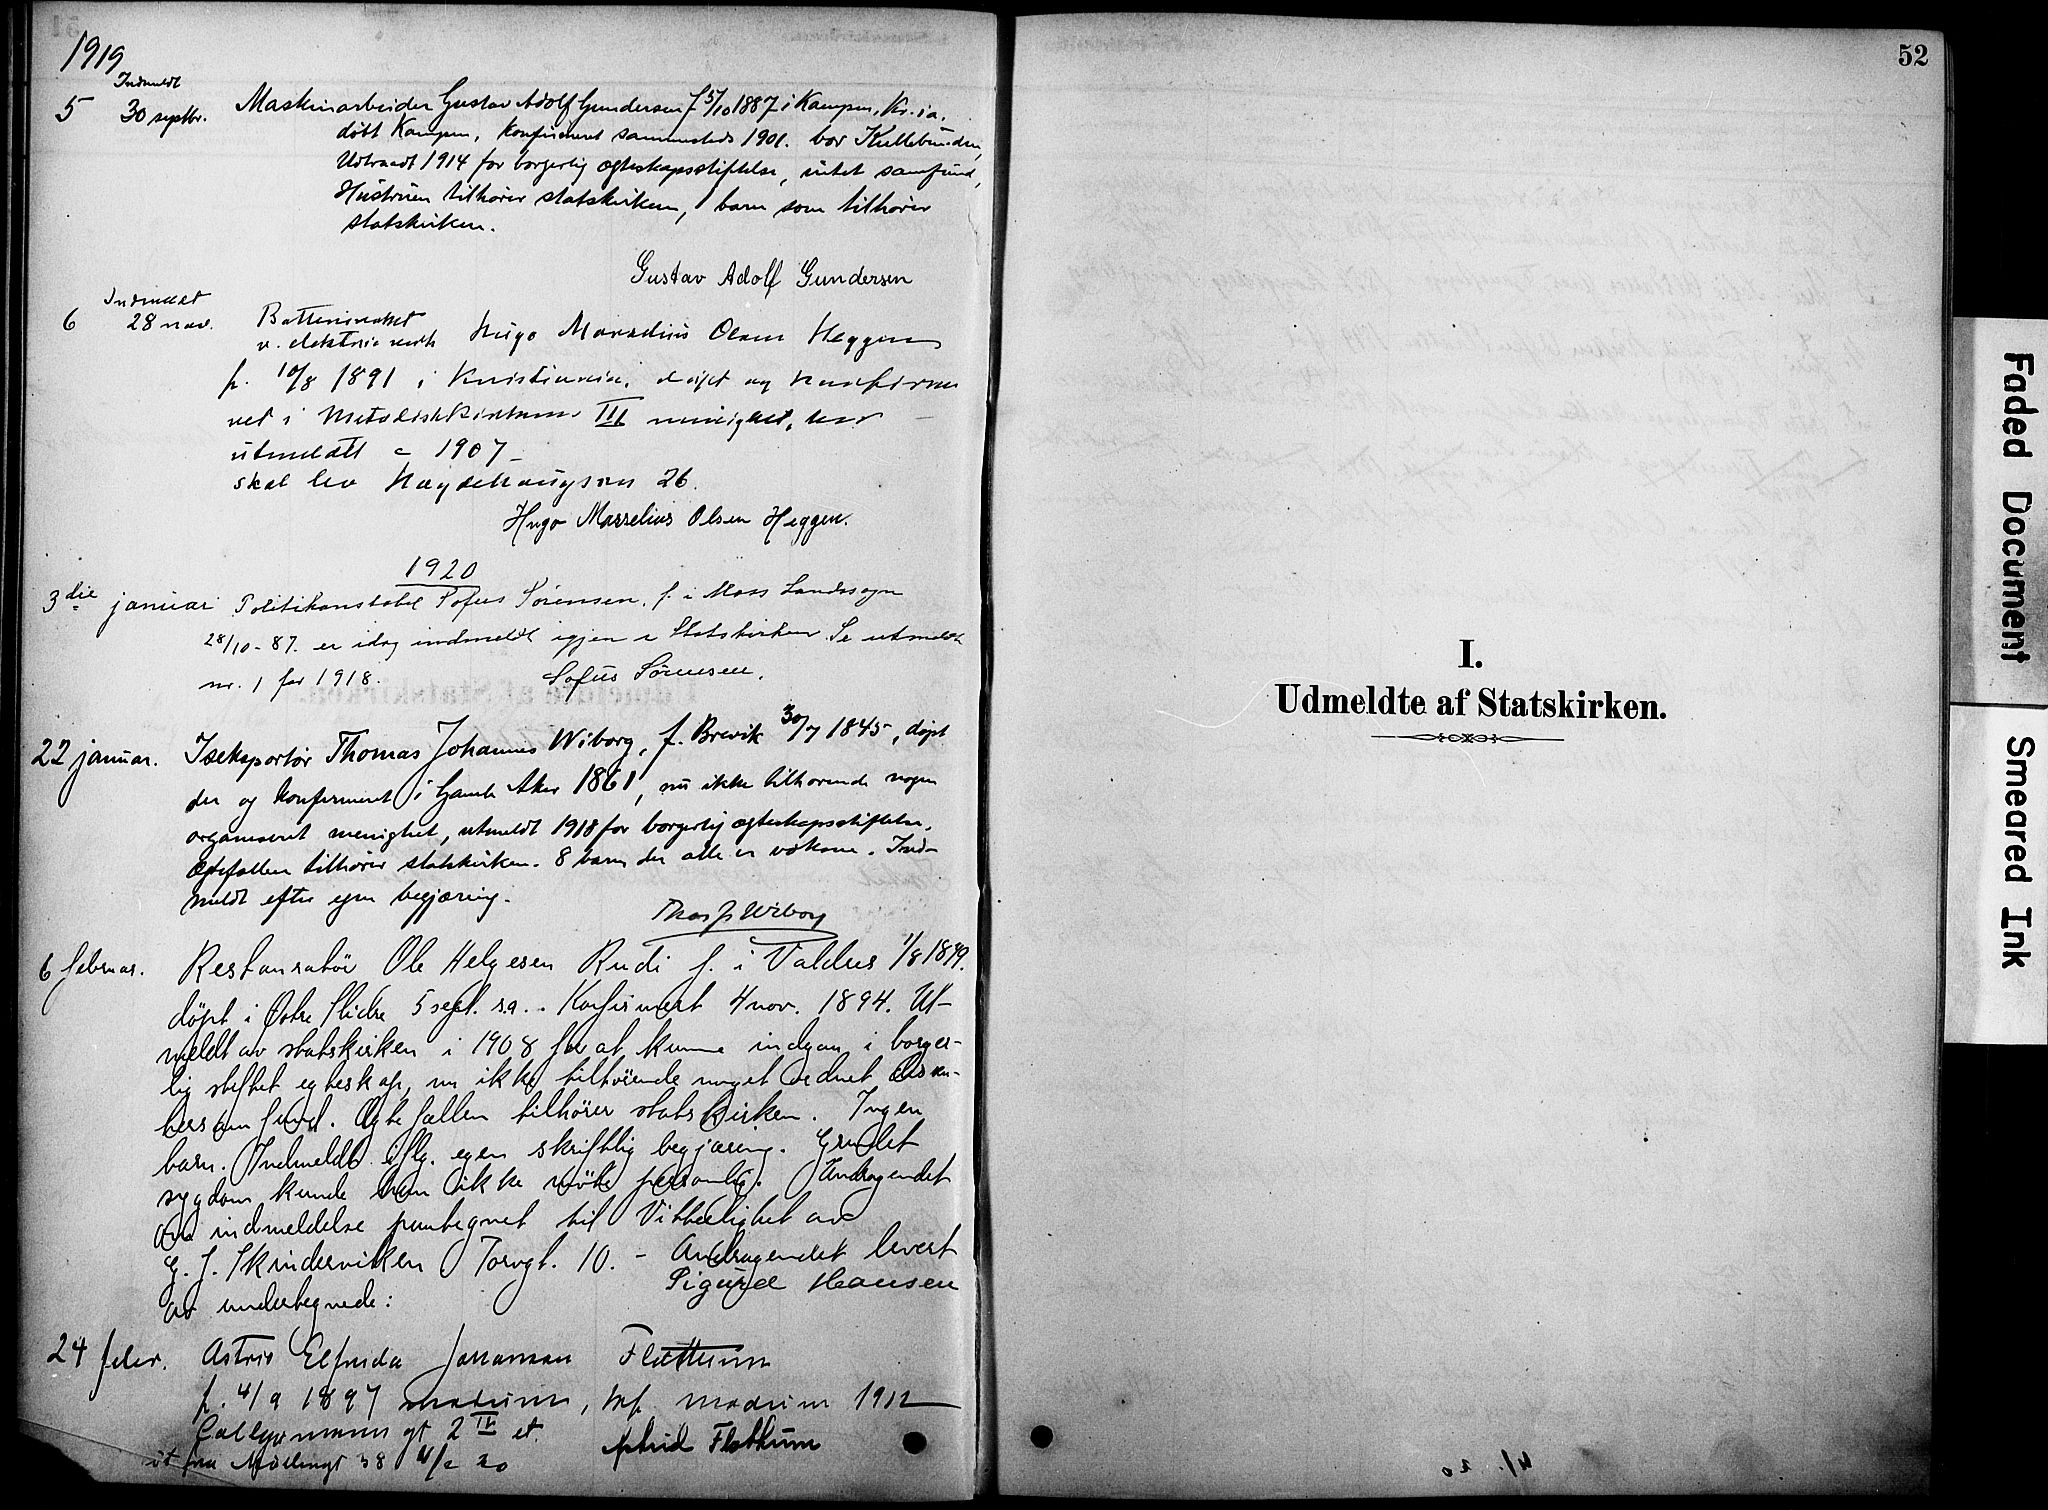 1919
Indmeldt
5 30 septbr. Maskinarbeider Gustav Adolf Gundersen f 5/10 1887 i Kampen, Kr.ia.
døbt Kampen, konfirmeret sammesteds 1901. bor
Udtraadt 1914 for borgerlig ægteskapsstiftelse, intet samfund,
Hustruen tilhører statskirken, 1 barn som tilhører
statskirken.
Gustav Adolf Gundersen
Indmeldt
6 28 nov.
v. elektric verk Hugo Marselius Olsen Heggen
f. 10/8 1891 i Kristiania, døpt og konfirme
ret i III menighet, har
utmeldt c 1907
26.
Hugo Marselius Olsen Heggen.
1920
3die januar Politikonstabel Sofus Sørensen, f. i Moss Landssogn
28/10-87. er idag indmeldt igjen i Statskirken Se utmeldt
nr. 1 for 1918. Sofus Sørensen.
22 januar. Iseksportør Thomas Johannes Wiborg, f. Brevik 30/7 1845, døpt
der og konfirmeret i Gamle Aker 1861, nu ikke tilhørende nogen
organiseret menighet, utmeldt 1918 for borgerlig ægteskapsstiftelse.
Egtefællen tilhører statskirken. 8 barn der alle er voksne. Ind-
meldt efter egen begjæring.
Thos J. Wiborg
6 februar. Restauratør Ole Helgesen Rudi f. i Valdres 1/8 1879.
døpt i Østre Slidre 5 sept. s.a. Konfirmert 4 nov. 1894. Ut-
meldt av statskirken i 1908 for at kunne indgaa i borger-
lig stiftet egteskap, nu ikke tilhørende noget ordnet dissen-
tersamfund. Egtefællen tilhører statskirken. Ingen
barn. Indmeldt iflg. egen skriftlig begjæring. Grundet
sygdom kunde han ikke møte personlig. Andragendet
om indmeldelse paategnet til Vitterlighet av
G. J. Skindervikken Torvgt. 10. - Andragendet levert
av undertegnede: Sigurd Hansen
24 febr. Astrid Elfrida Johansen Flattum
f. 4/9 1897 Modum, kf. Modum 1912
gt 2 IV et. Astrid Flattum
ut fra Møllergt 38 4/2 20
52
I.
Udmeldte af Statskirken.
Faded Document
Smeared Ink